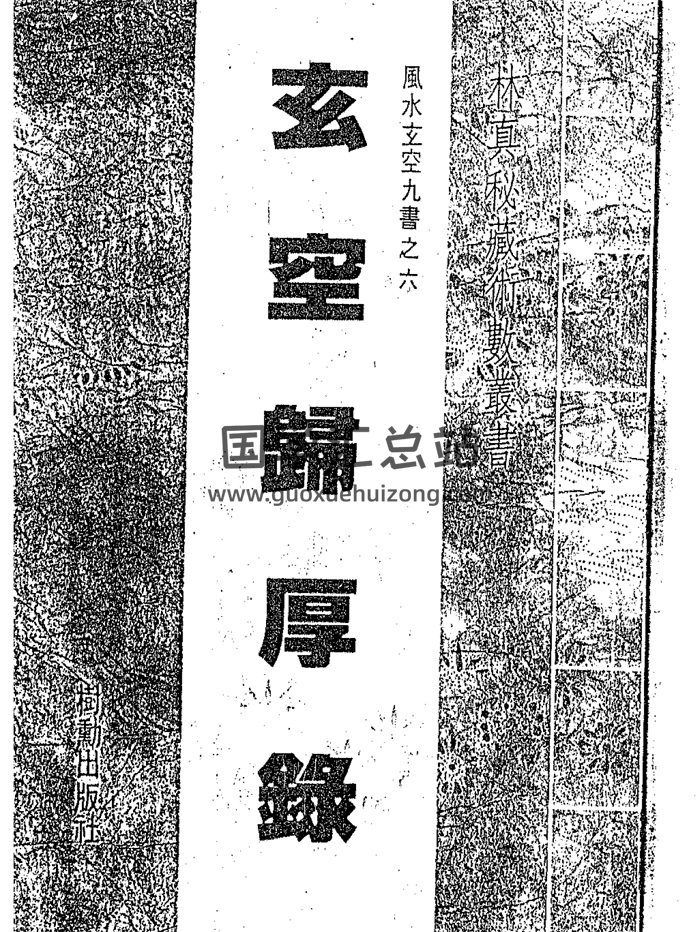 林真秘藏術數叢書
風水玄空九書之六
玄空歸厚錄
樹勳出版社
国学汇总站
www.guoxuehuizong.com